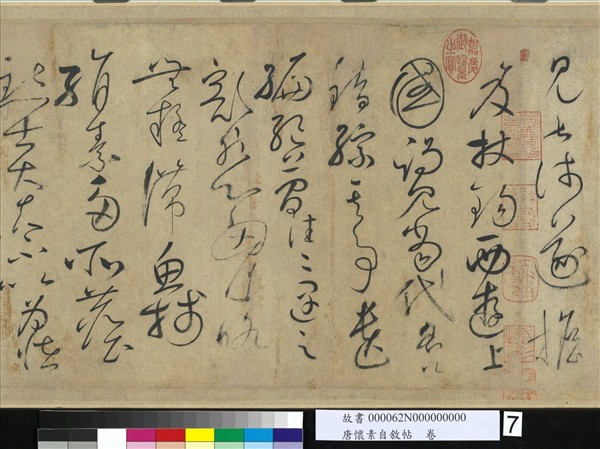 見甚淺遂擔
笈杖錫西遊上
國謁見當代名公
錯綜其事遺
編絕簡往往遇之
豁然心胸略
無疑滯魚牋
絹素多所塵
點士大夫不以為怪
嘉慶御覽之寶
故書 000062N000000000
唐懷素自敘帖 卷
7